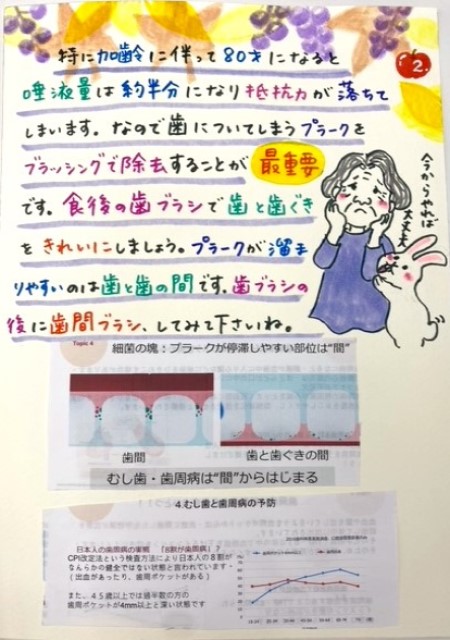 特に加齢に伴って80才になると
唾液量は約半分になり抵抗力が落ちて
しまいます。なので歯についてしまうプラークを
ブラッシングで除去することが最重要
です。食後の歯ブラシで歯と歯ぐき
をきれいにしましょう。プラークが溜ま
りやすいのは歯と歯の間です。歯ブラシの
後に歯間ブラシ、してみて下さいね。
2.
今からやれば
大丈夫
Topic 4
細菌の塊:プラークが停滞しやすい部位は“間”
歯間
歯と歯ぐきの間
むし歯・歯周病は“間”からはじまる
4.むし歯と歯周病の予防
日本人の歯周病の実態 「8割が歯周病」?
CPI改定法という検査方法により日本人の8割が
なんらかの健全ではない状態と言われています・
(出血があったり、歯周ポケットがある)
また、45歳以上では過半数の方の
歯周ポケットが4mm以上と深い状態です